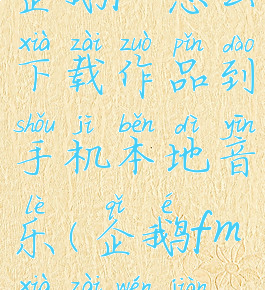 xià zài zuò pǐn dào
下载作品到
shǒu jī běn dì yīn
手机本地音
lè qǐ é
乐(企鹅fm
xià zài wén jiàn